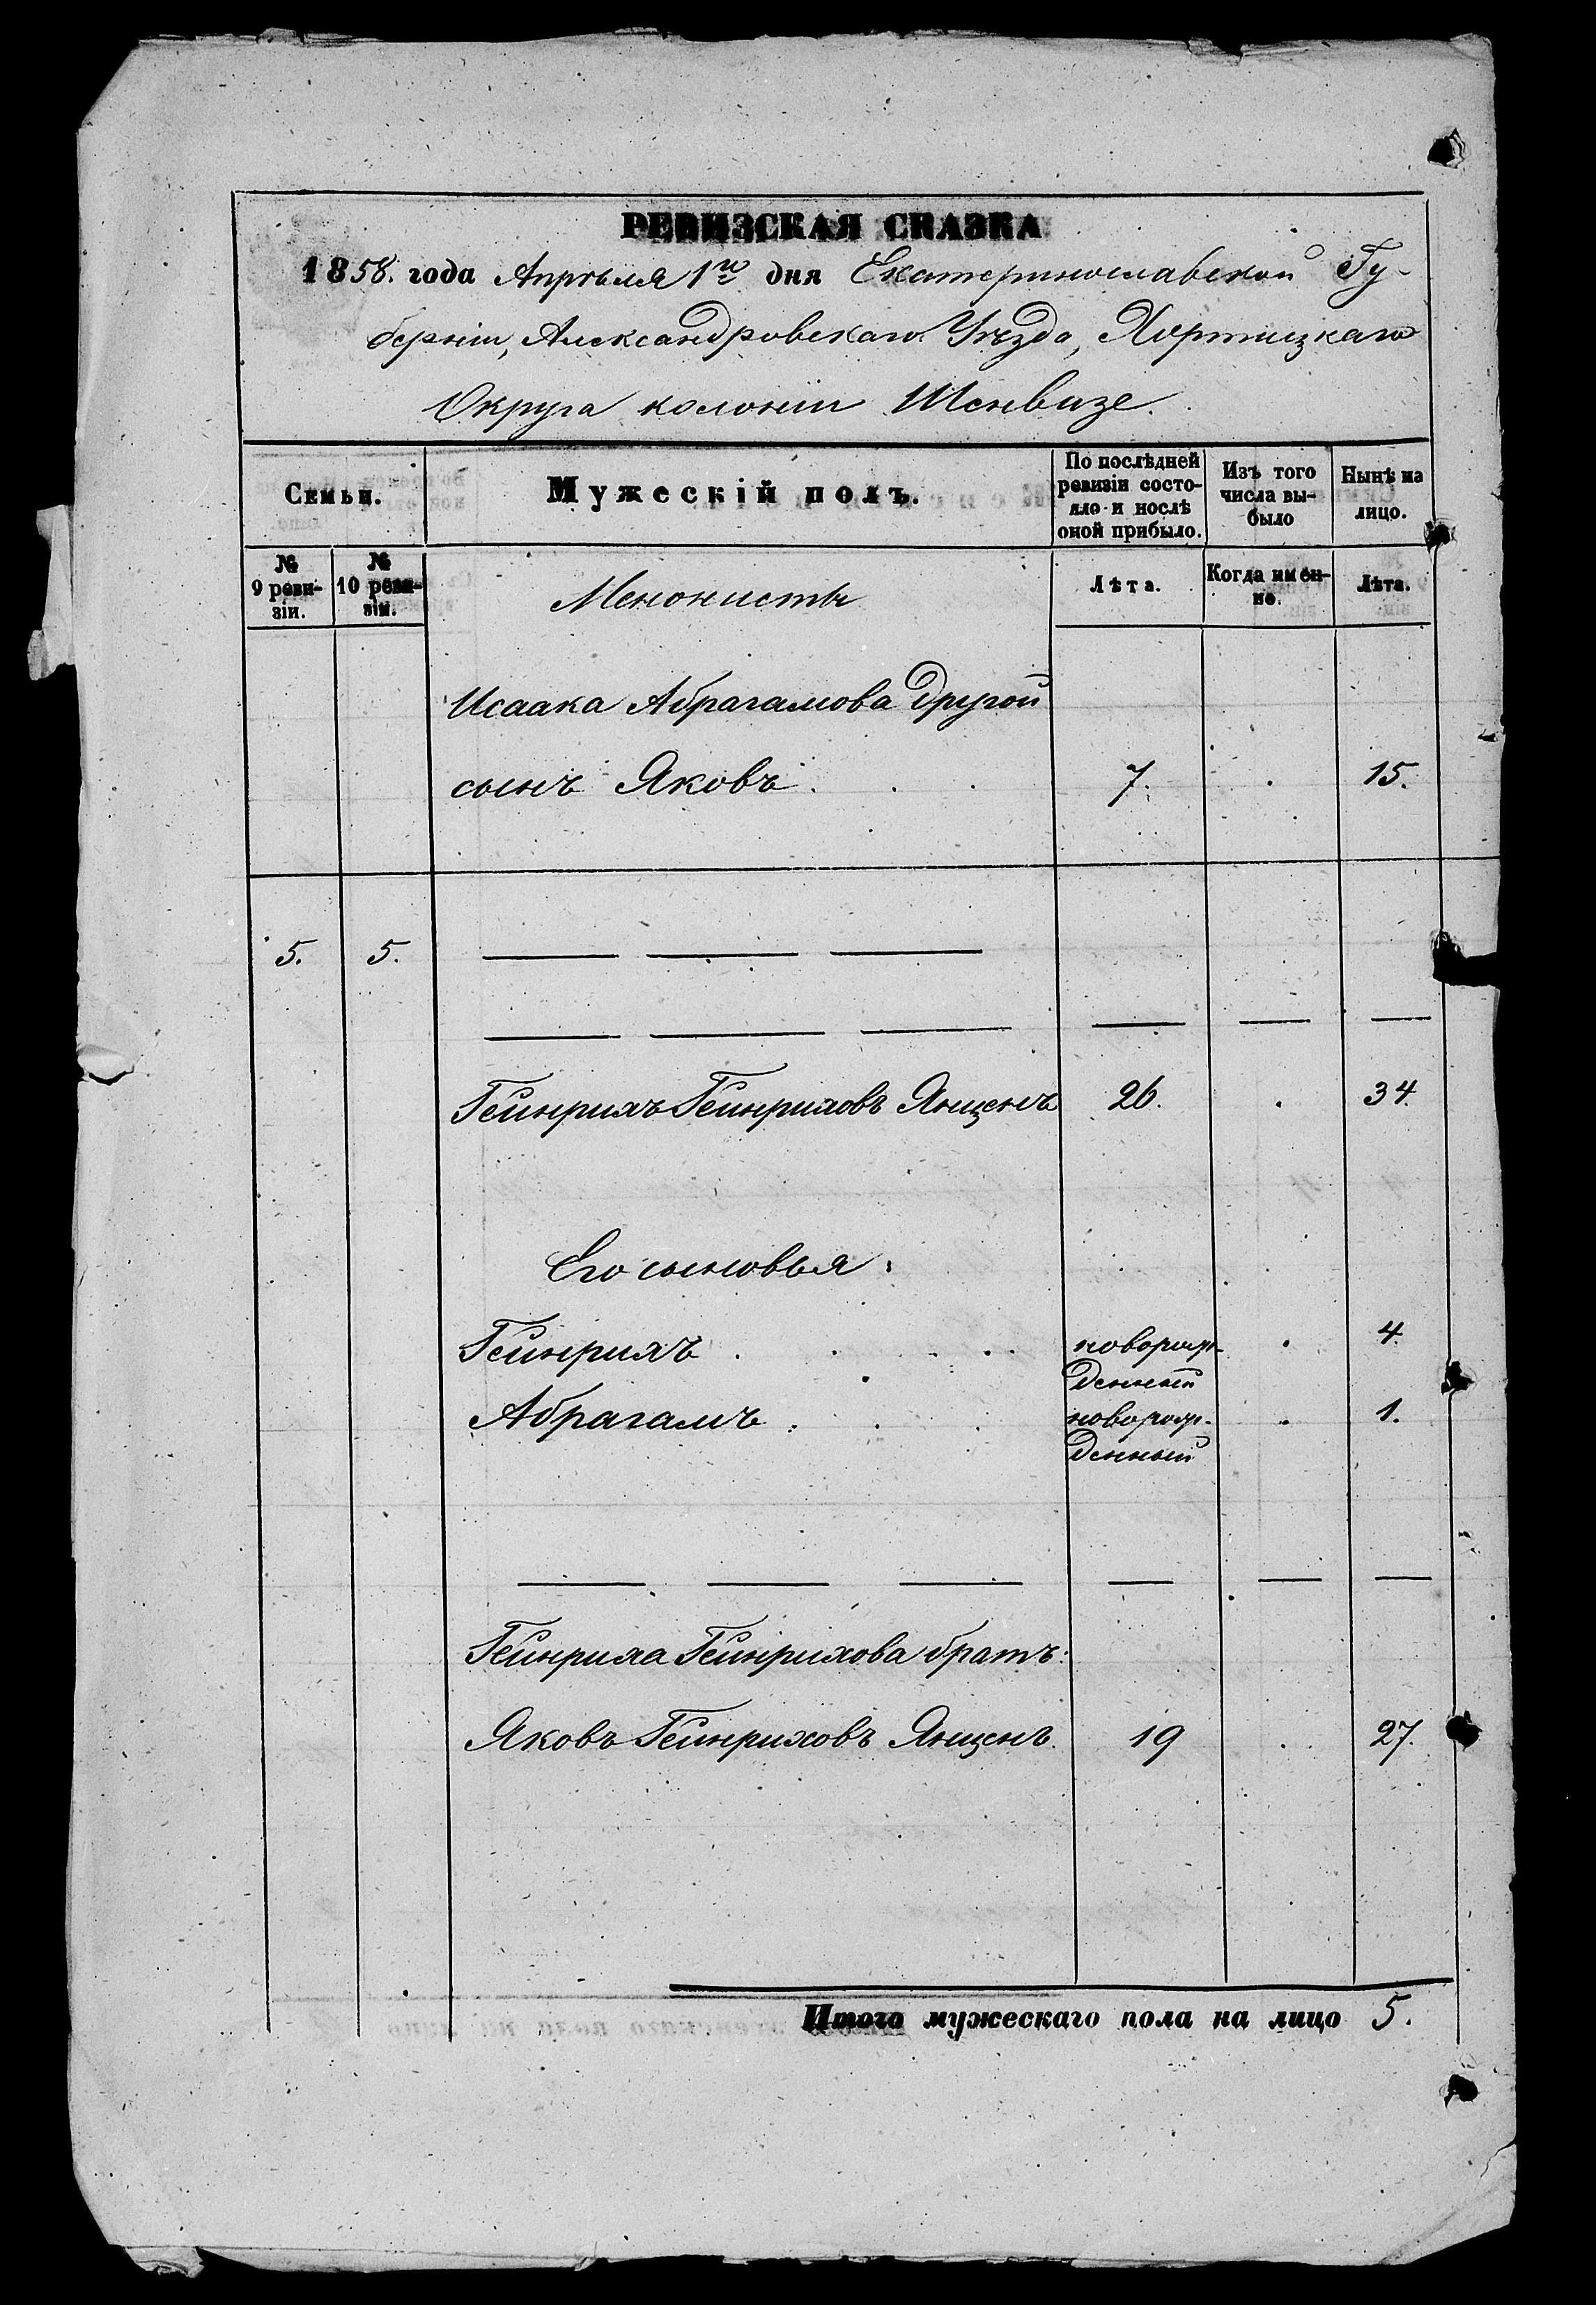 РЕВИЗСКАЯ СКАЗКА
1858. года Апрѣля 1го дня Екатеринославской Гу-
берніи, Александровскаго Уѣзда, Хортицкаго
Округа колоніи Шенвизе.
Семьи.
Мужескій полъ.
По послѣдней ревизіи состо-
яло и послѣ оной прибыло.
Изъ того числа вы-
было
Нынѣ на лицо.
№ 9 реви-
зіи.
№ 10 реви-
зіи.
Менонисты
Лѣта.
Когда имен-
но.
Лѣта.
Исаака Абрагамова другой
сынъ Яковъ . . . 7. . 15.
5. 5.
Гейнрихъ Гейнриховъ Янценъ 26. . 34.
Его сыновья:
Гейнрихъ . . . . новорож-
денный . 4.
Абрагамъ . . . новорож-
денный . 1.
Гейнриха Гейнрихова братъ:
Яковъ Гейнриховъ Янценъ. 19 . 27.
Итого мужескаго пола на лицо 5.